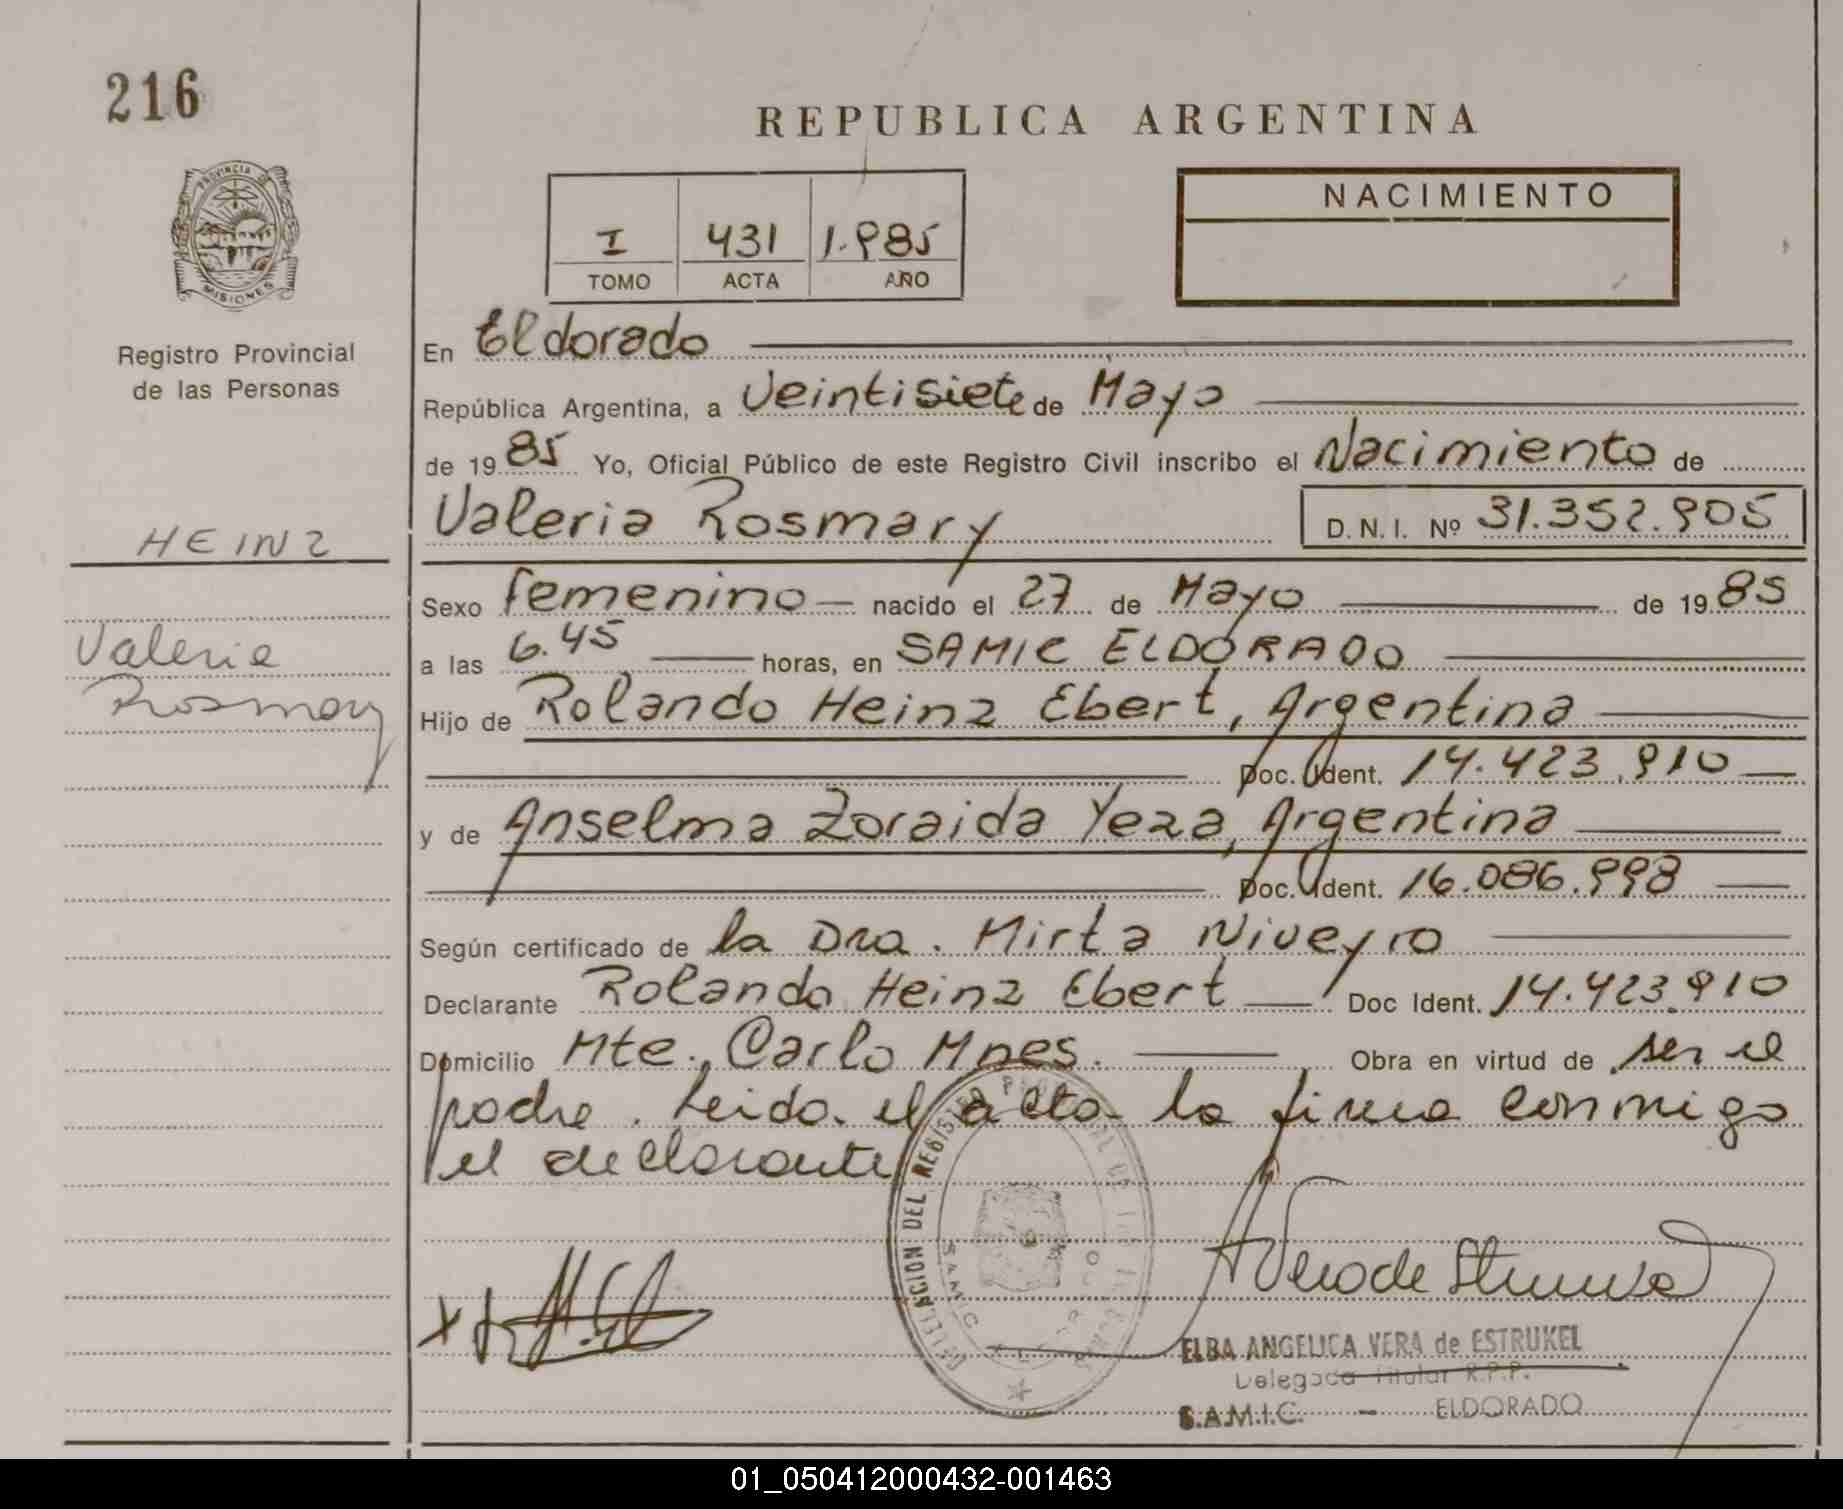 216
REPUBLICA ARGENTINA
PROVINCIA DE
MISIONES
Registro Provincial
de las Personas
I 431 1.985
TOMO ACTA AÑO
NACIMIENTO
En Eldorado
República Argentina, a Veintisiete de Mayo
de 1985 Yo, Oficial Público de este Registro Civil inscribo el Nacimiento de
Valeria Rosmary D. N. I. Nº 31.352.905
HEINZ
Sexo femenino nacido el 27 de Mayo de 1985
Valeria
Rosmary
a las 6.45 horas, en SAMIC ELDORADO
Hijo de Rolando Heinz Ebert, Argentina
Doc. Ident. 14.423.910
y de Anselma Zoraida Yeza, Argentina
Doc. Ident. 16.086.998
Según certificado de la Dra. Mirta Niveyro
Declarante Rolando Heinz Ebert Doc Ident. 14.423.910
Domicilio Mte. Carlo Mnes. Obra en virtud de ser el
padre. Leida el acta la firma conmigo
el declarante
DELEGACION DEL REGISTRO PROVINCIAL DE LAS PERSONAS
SAMIC
ELBA ANGELICA VERA de ESTRUKEL
Delegada Titular R.P.P.
S.A.M.I.C. - ELDORADO
01_050412000432-001463